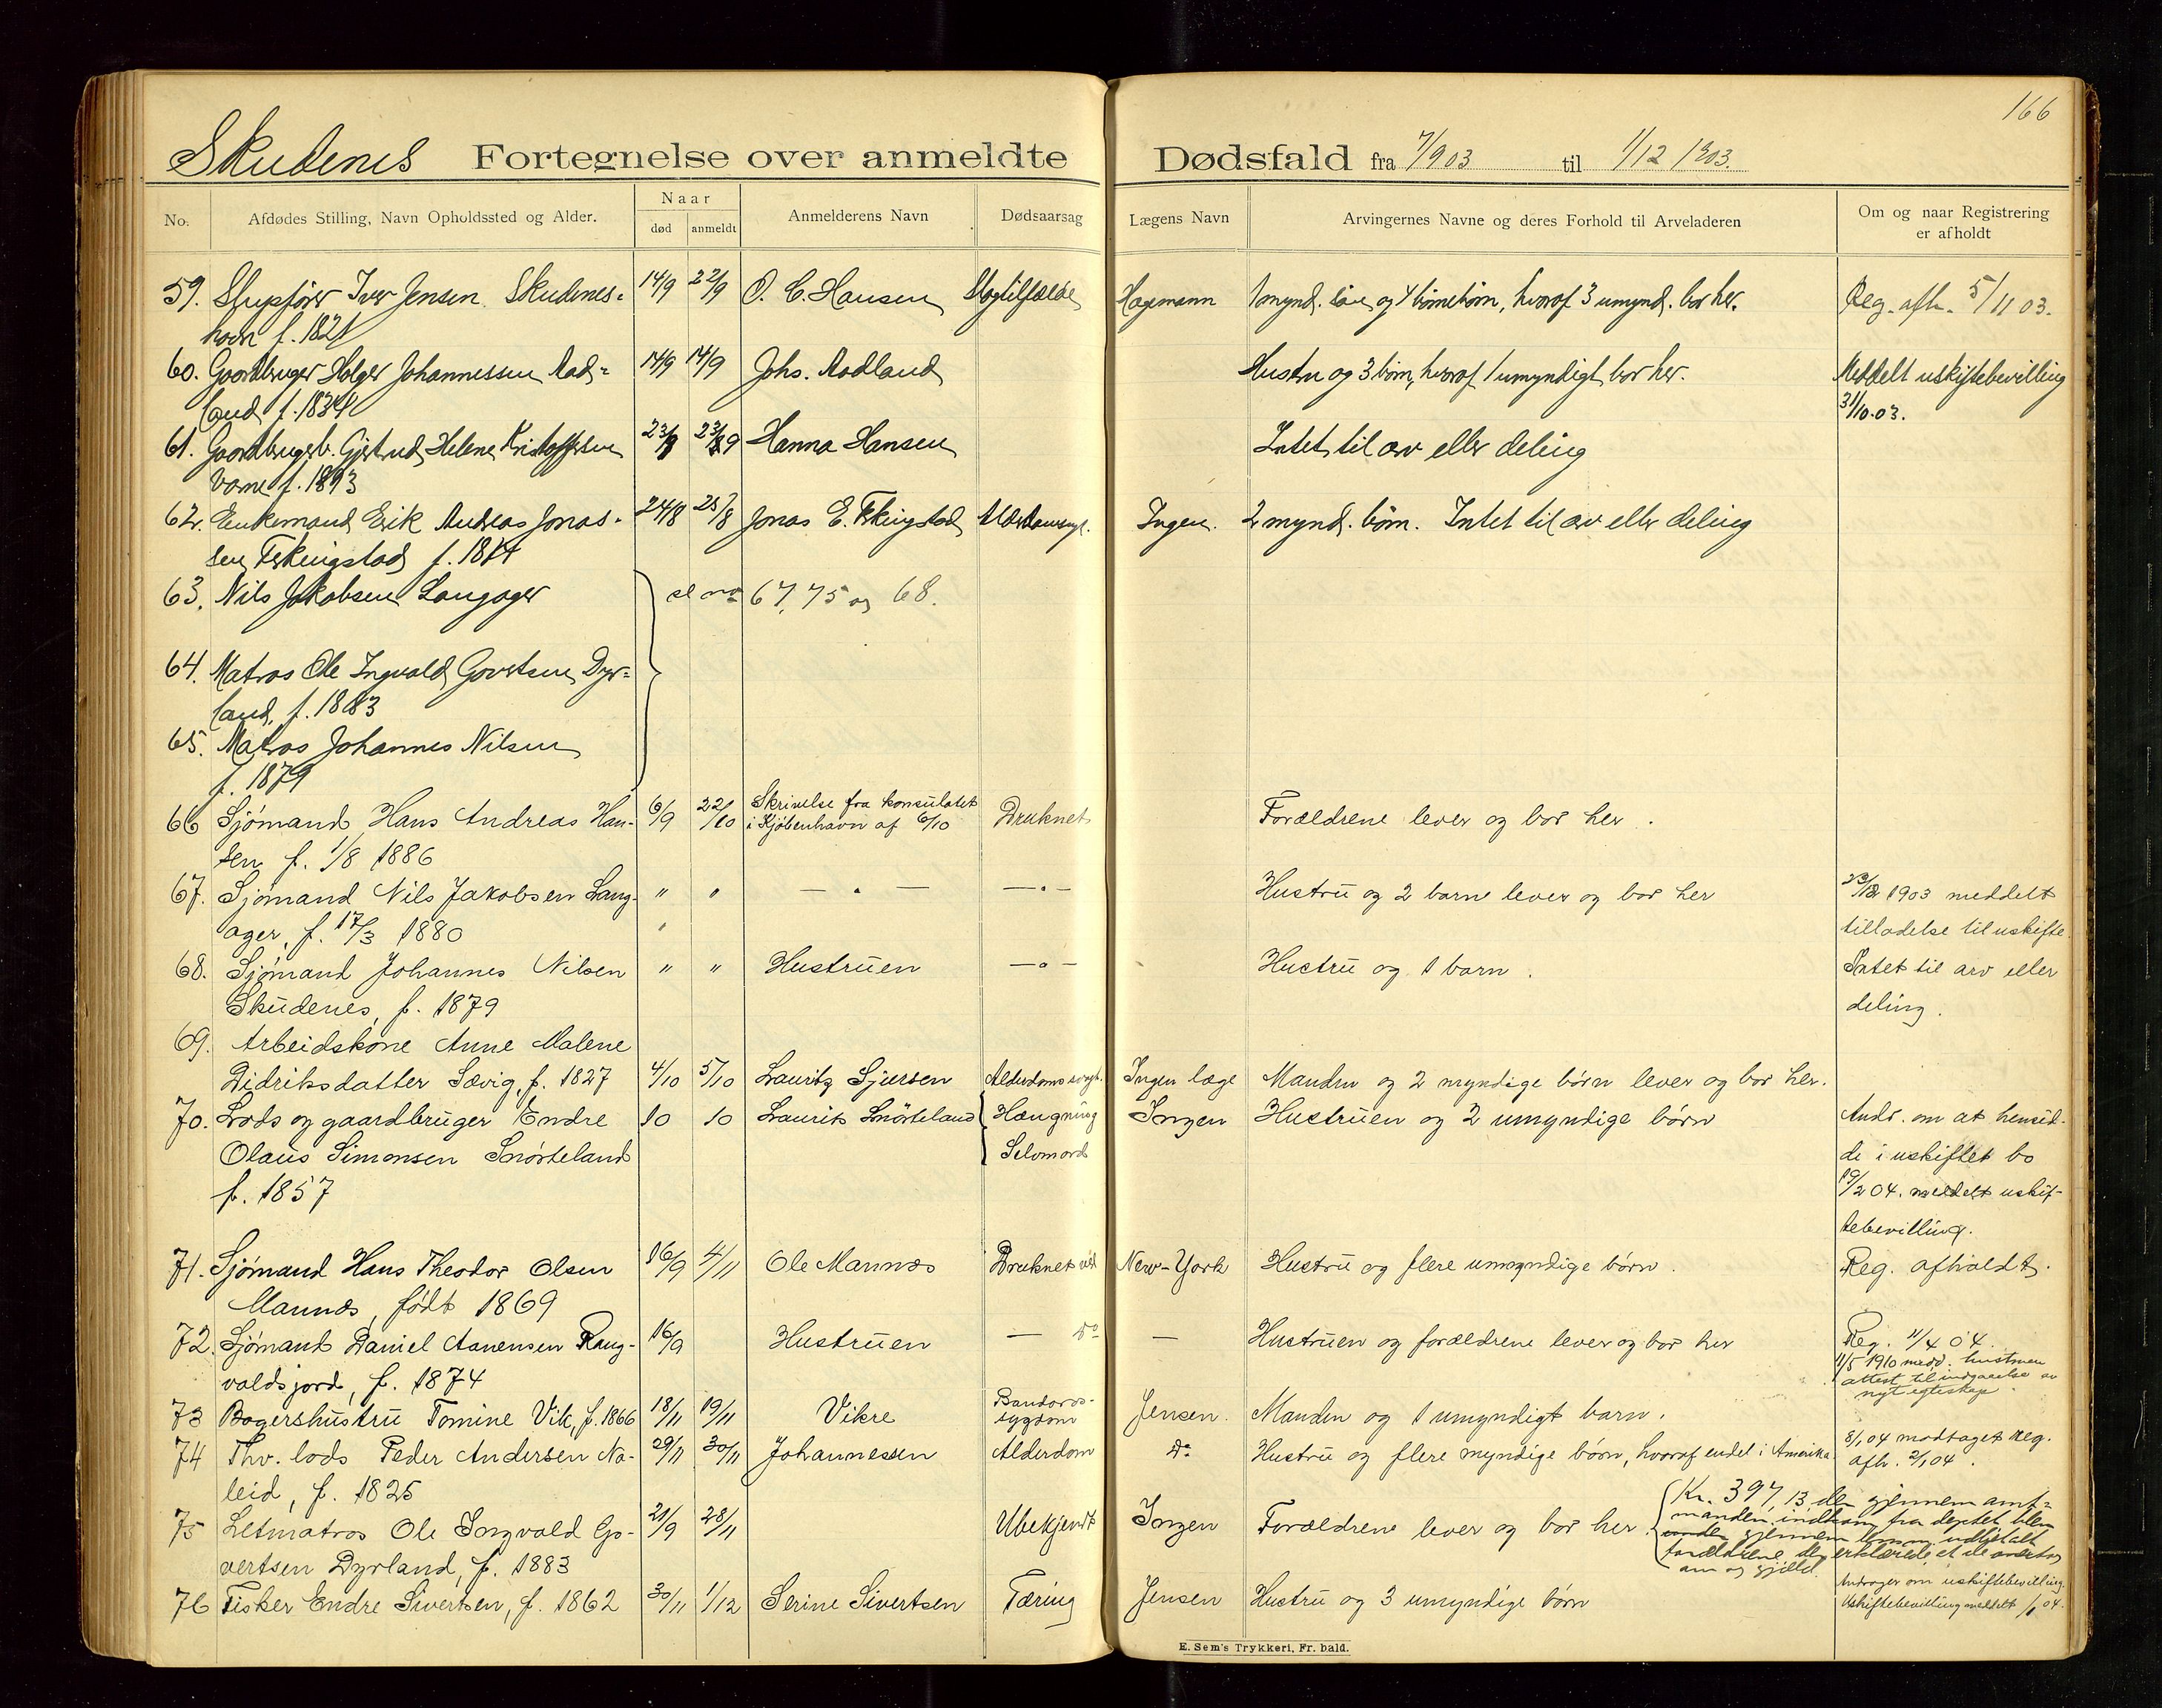 166
Skudenes Fortegnelse over anmeldte Dødsfald fra 7/9 03 til 1/12 1903.
No. Afdødes Stilling, Navn Opholdssted og Alder. Naar død anmeldt Anmelderens Navn Dødsaarsag Lægens Navn Arvingernes Navne og deres Forhold til Arveladeren Om og naar Registrering er afholdt
59. Iver Jensen Skudenes- 14/9 22/9 O. C. Hansen Slagtilfælde Hagemann 1 mynd. søn og 4 børnebørn, hvoraf 3 umynd. bor her. Reg. afh. 5/11 03.
havn f. 1821
60. Gaardbruger Holger Johannessen Aad- 14/9 14/9 Johs. Aadland Hustru og 3 børn, hvoraf 1 umyndigt, bor her. Meddelt uskiftebevilling
land f. 1834 31/10.03.
61. Gaardbrugerb. Gjertrud Helene Kristoffersen 23/9 Hanna Hansen Intet til arv eller deling
f. 1893
62. Enkemand Erik Andreas Jonas- 24/8 25/8 Jonas E. Ferkingstad Ingen. 2 mynd. børn. Intet til arv eller deling
sen Ferkingstad f. 1814
63. Nils Jakobsen Langager se no 67, 75 og 68.
64. Matros Ole Ingvald Govertsen Dyr-
land, f. 1883
65. Matros Johannes Nilsen
f. 1879
66 Sjömand Hans Andreas Han- 6/9 22/10 Skrivelse fra konsulatet i Kjöbenhavn af 6/10 Druknet Forældrene lever og bor her.
sen f. 1/8 1886
67. Sjömand Nils Jakobsen Lang- " " — " — — " — Hustru og 2 barn lever og bor her 23/12 1903 meddelt
ager, f. 17/3 1880 tilladelse til uskifte.
68. Sjömand Johannes Nilsen " " Hustruen — " — Hustru og 1 barn. Intet til arv eller
Skudenes, f. 1879 deling.
69. Arbeidskone Anne Malene
Didriksdatter Sævig, f. 1827 4/10 5/10 Lauritz Sjursen Alderdomssvagh. Ingen læge Manden og 2 myndige børn lever og bor her.
70. Lods og gaardbruger Endre 10 10 Laurits Snörteland Hængning Ingen Hustruen og 2 umyndige børn Andr. om at hensid-
Olaus Simonsen Snörteland Selvmord de i uskiftet bo
f. 1857 19/2 04. meddelt uskif-
tebevilling.
71. Sjömand Hans Theodor Olsen 16/9 4/11 Ole Mannæs Druknet ved New-York Hustru og flere umyndige børn. Reg. afholdt.
Mannæs, født 1869
72. Sjömand Daniel Aanensen Rang- 16/9 Hustruen — do — Hustruen og forældrene lever og bor her Reg. 11/4 04.
valdsjord, f. 1874 11/5 1910 medd. hustruen
attest til indgaaelse av
nyt egteskap.
73 Bagershustru Tomine Vik, f. 1866 18/11 19/11 Vikre sygdom Jensen. Manden og 1 umyndigt barn.
74 Fhv. lods Peder Andersen Na- 29/11 30/11 Johannessen Alderdom do Hustru og flere myndige børn, hvoraf endel i Amerika 8/1 04 modtaget reg.
leid, f. 1825 afh. 2/1 04.
75 Letmatros Ole Ingvald Go- 21/9 28/11 Ubekjendt Ingen Forældrene lever og bor her. Kr. 397,13 der gjennem amt-
manden indkom fra deptet blev
gjennem udbetalt
vertsen Dyrland, f. 1883 forældrene, der erklærede, at de overtog
arv og gjæld.
76 Fisker Endre Sivertsen, f. 1862 30/11 1/12 Serine Sivertsen Tæring Jensen Hustru og 3 umyndige børn Andrager om uskiftebevilling.
Uskiftebevilling meddelt 04.
E. Sem's Trykkeri, Fr. hald.